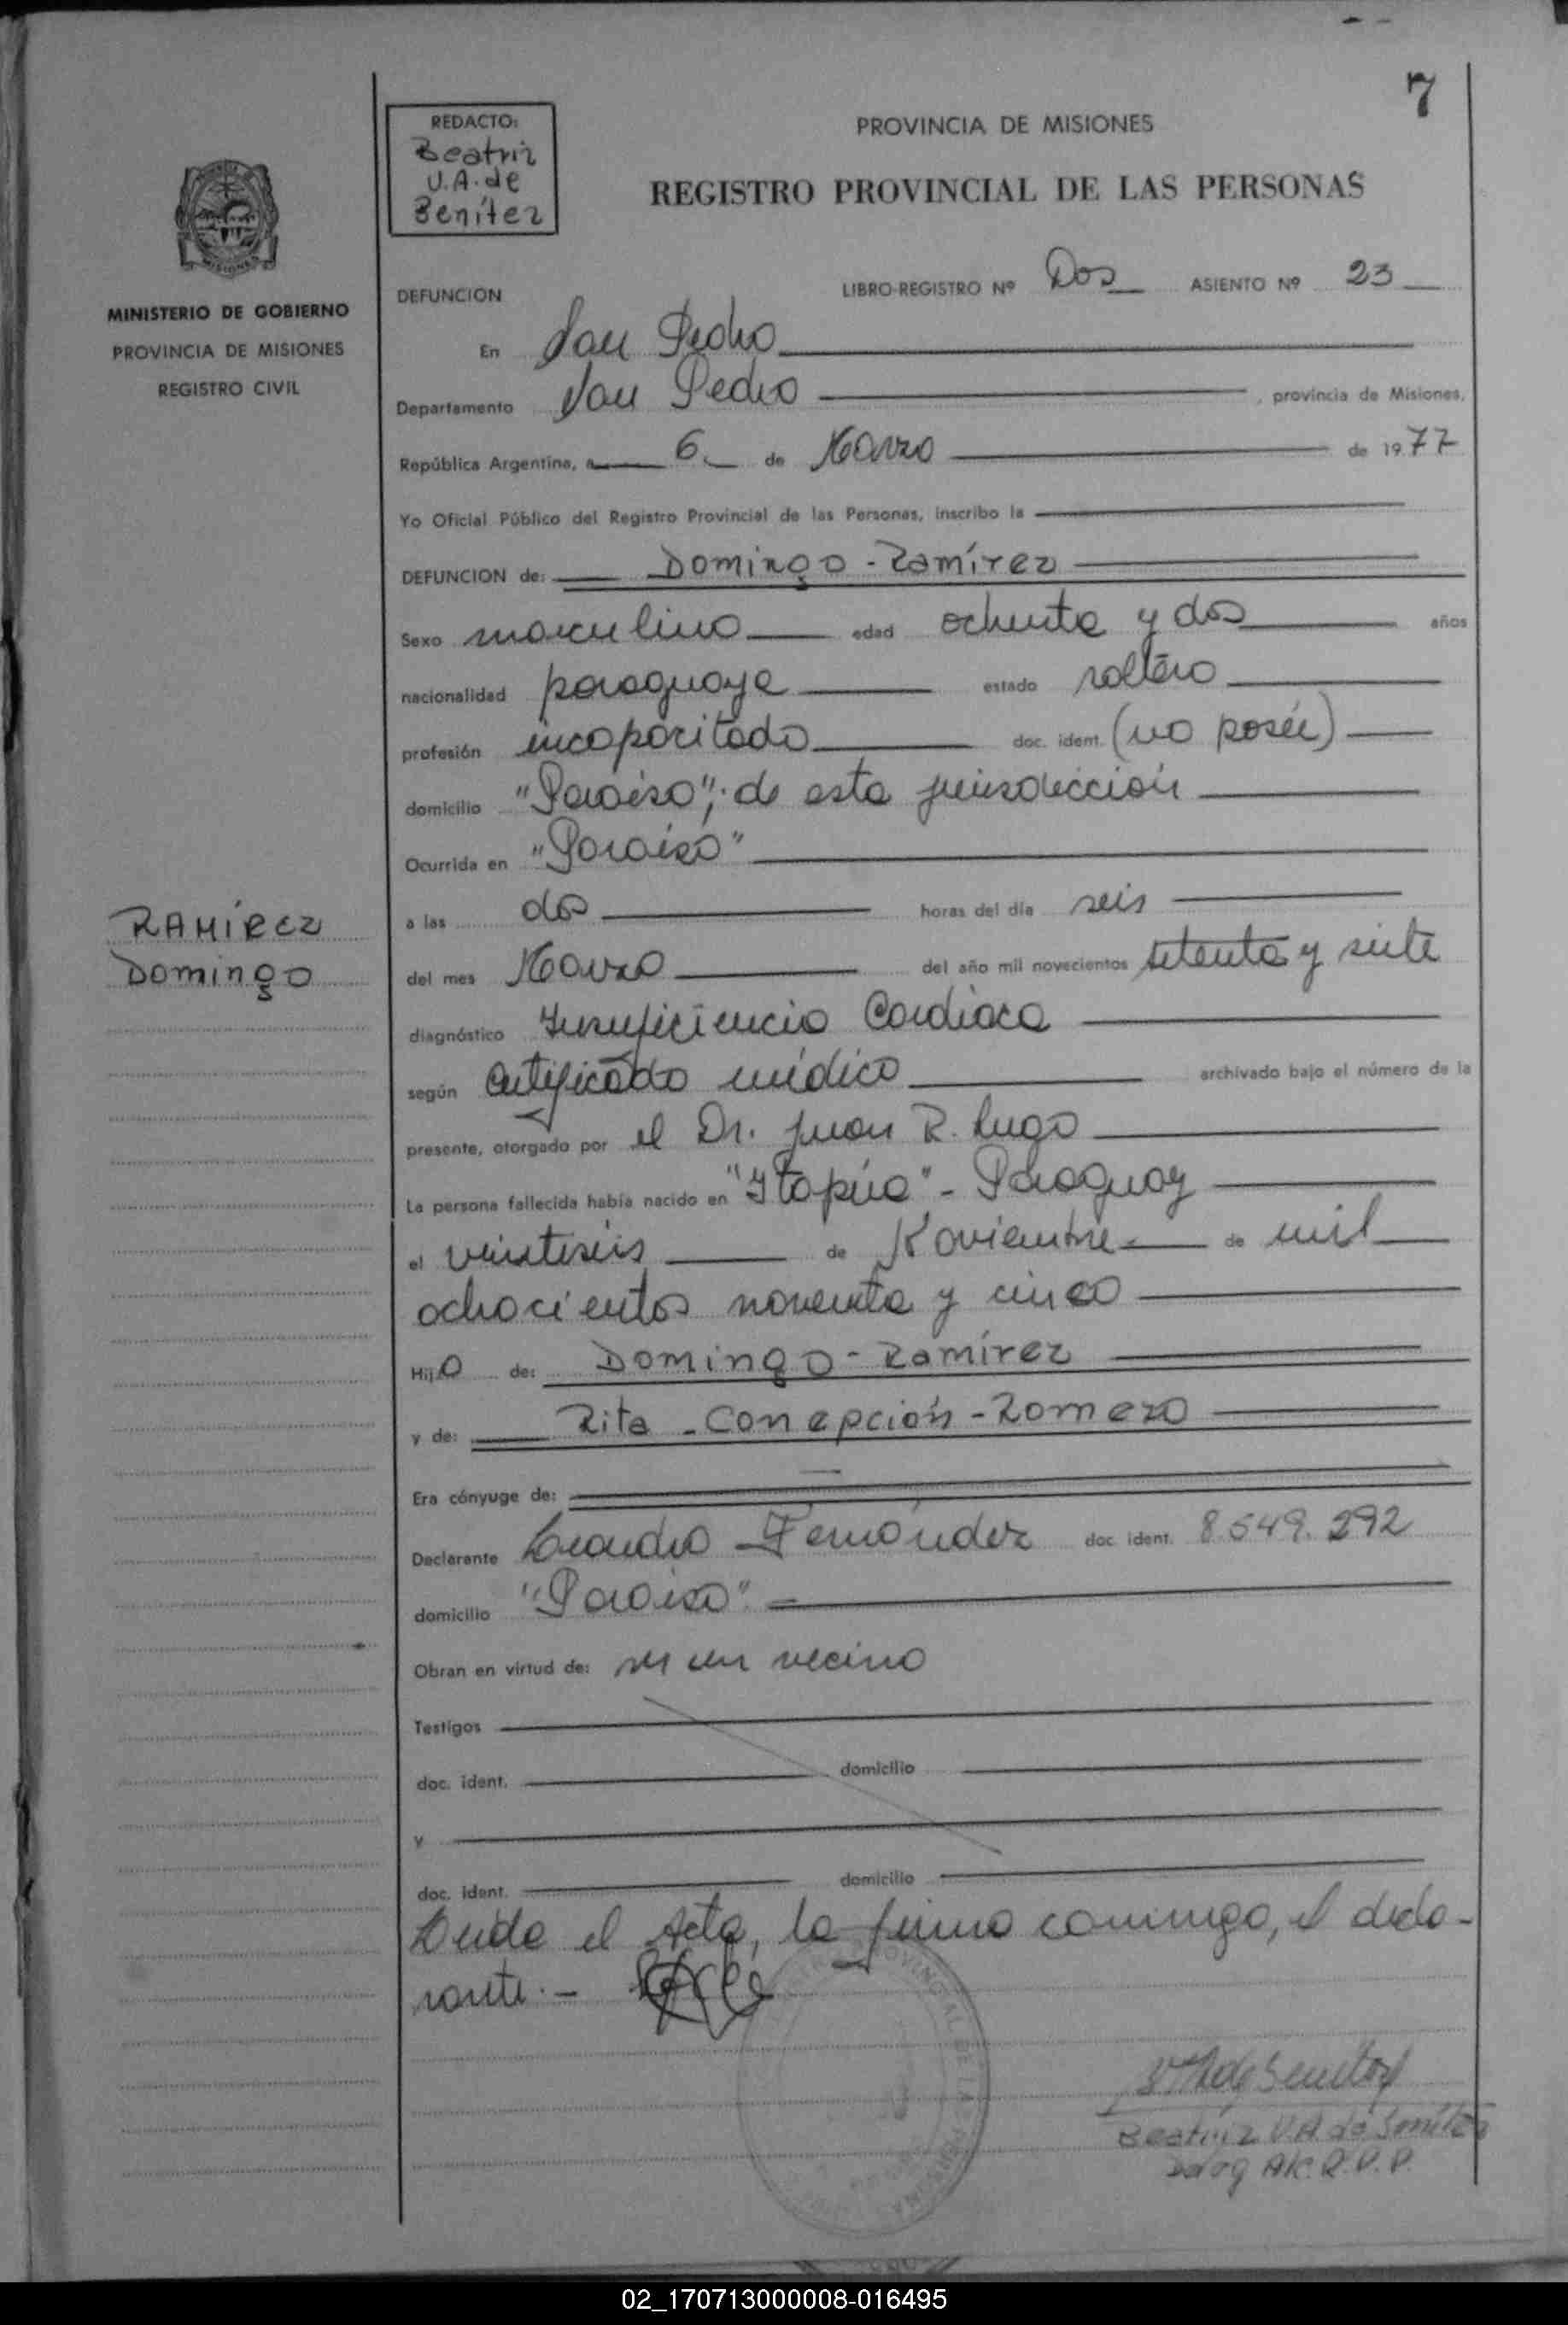 7
REDACTO:
Beatriz
V.A. de
Benítez
PROVINCIA DE MISIONES
REGISTRO PROVINCIAL DE LAS PERSONAS
MISIONES
MINISTERIO DE GOBIERNO
PROVINCIA DE MISIONES
REGISTRO CIVIL
LIBRO-REGISTRO Nº Dos ASIENTO Nº 23
DEFUNCION
En San Pedro
Departamento San Pedro, provincia de Misiones,
República Argentina, a 6 de Marzo de 1977
Yo Oficial Público del Registro Provincial de las Personas, inscribo la
DEFUNCION de: Domingo - Ramírez
Sexo masculino edad ochenta y dos años
nacionalidad paraguaya estado soltero
profesión incapacitado doc. ident. (no posée)
domicilio "Paraíso", de esta jurisdicción
Ocurrida en "Paraíso"
a las dos horas del día seis
RAMÍREZ
Domingo
del mes Marzo del año mil novecientos setenta y siete
diagnóstico Insuficiencia Cardíaca
según Certificado médico archivado bajo el número de la
presente, otorgado por el Dr. Juan R. Lugo
La persona fallecida había nacido en "Itapúa" - Paraguay
el veintiseis de Noviembre de mil
ochocientos noventa y cinco
Hijo de: Domingo - Ramírez
y de: Rita - Concepción - Romero
Era cónyuge de:
Declarante Leandro Fernández doc. ident. 8.549.292
domicilio "Paraíso".
Obran en virtud de: ser un vecino
Testigos
doc. ident. domicilio
y
doc. ident. domicilio
Leída el Acta, la firma conmigo, el decla-
rante.-
Beatriz V.A. de Benítez
02_170713000008-016495